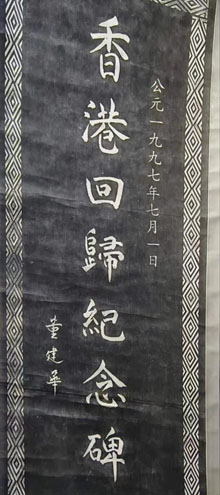 公元一九九七年七月一日
香港回歸紀念碑
董建華